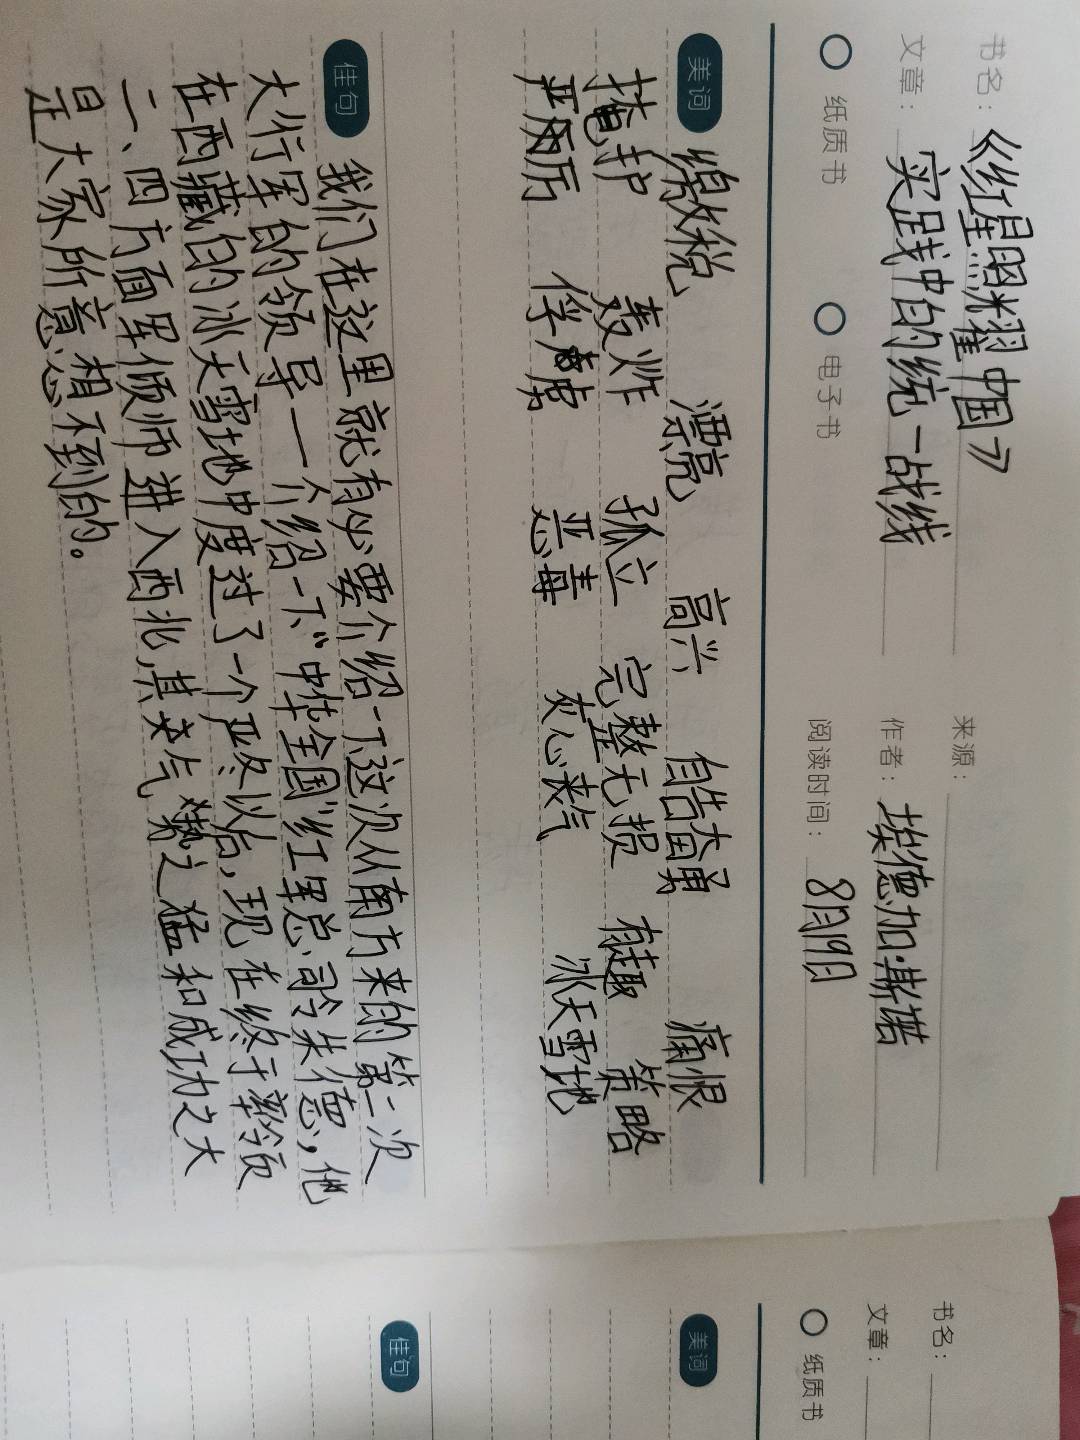 书名：《红星照耀中国》
来源：
文章：实践中的统一战线
作者：埃德加·斯诺
纸质书 电子书
阅读时间：8月19日
美词
缴税 漂亮 高兴 自告奋勇 痛恨
掩护 轰炸 孤立 完整无损 有趣 策略
严厉 俘虏 恶毒 灰心丧气 冰天雪地
佳句
我们在这里就有必要介绍一下这次从南方来的第二次
大行军的领导一介绍一下"中华全国"红军总司令朱德，他
在西藏的冰天雪地中度过了一个严冬以后，现在终于率领
二、四方面军倾师进入西北，其来气势之猛和成功之大
是大家所意想不到的。
书名：
文章：
纸质书
美词
佳句